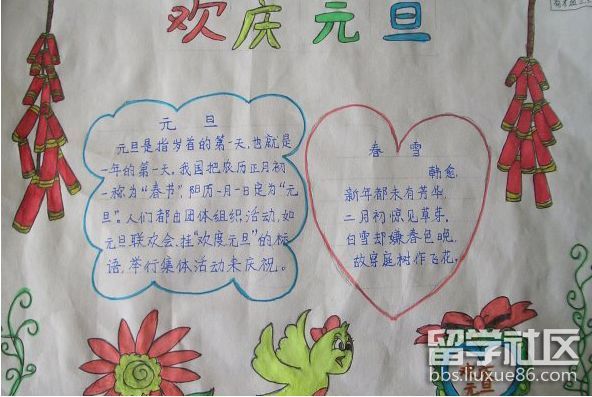 欢庆元旦
元旦
元旦是指岁首的第一天,也就是
一年的第一天。我国把农历正月初
一称为“春节”,阳历一月一日定为“元
旦”。人们都由团体组织活动,如
元旦联欢会、挂“欢度元旦”的标
语,举行集体活动来庆祝。
春雪
韩愈
新年都未有芳华,
二月初惊见草芽。
白雪却嫌春色晚,
故穿庭树作飞花。
元旦
留学社区
bbs.liuxue86.com